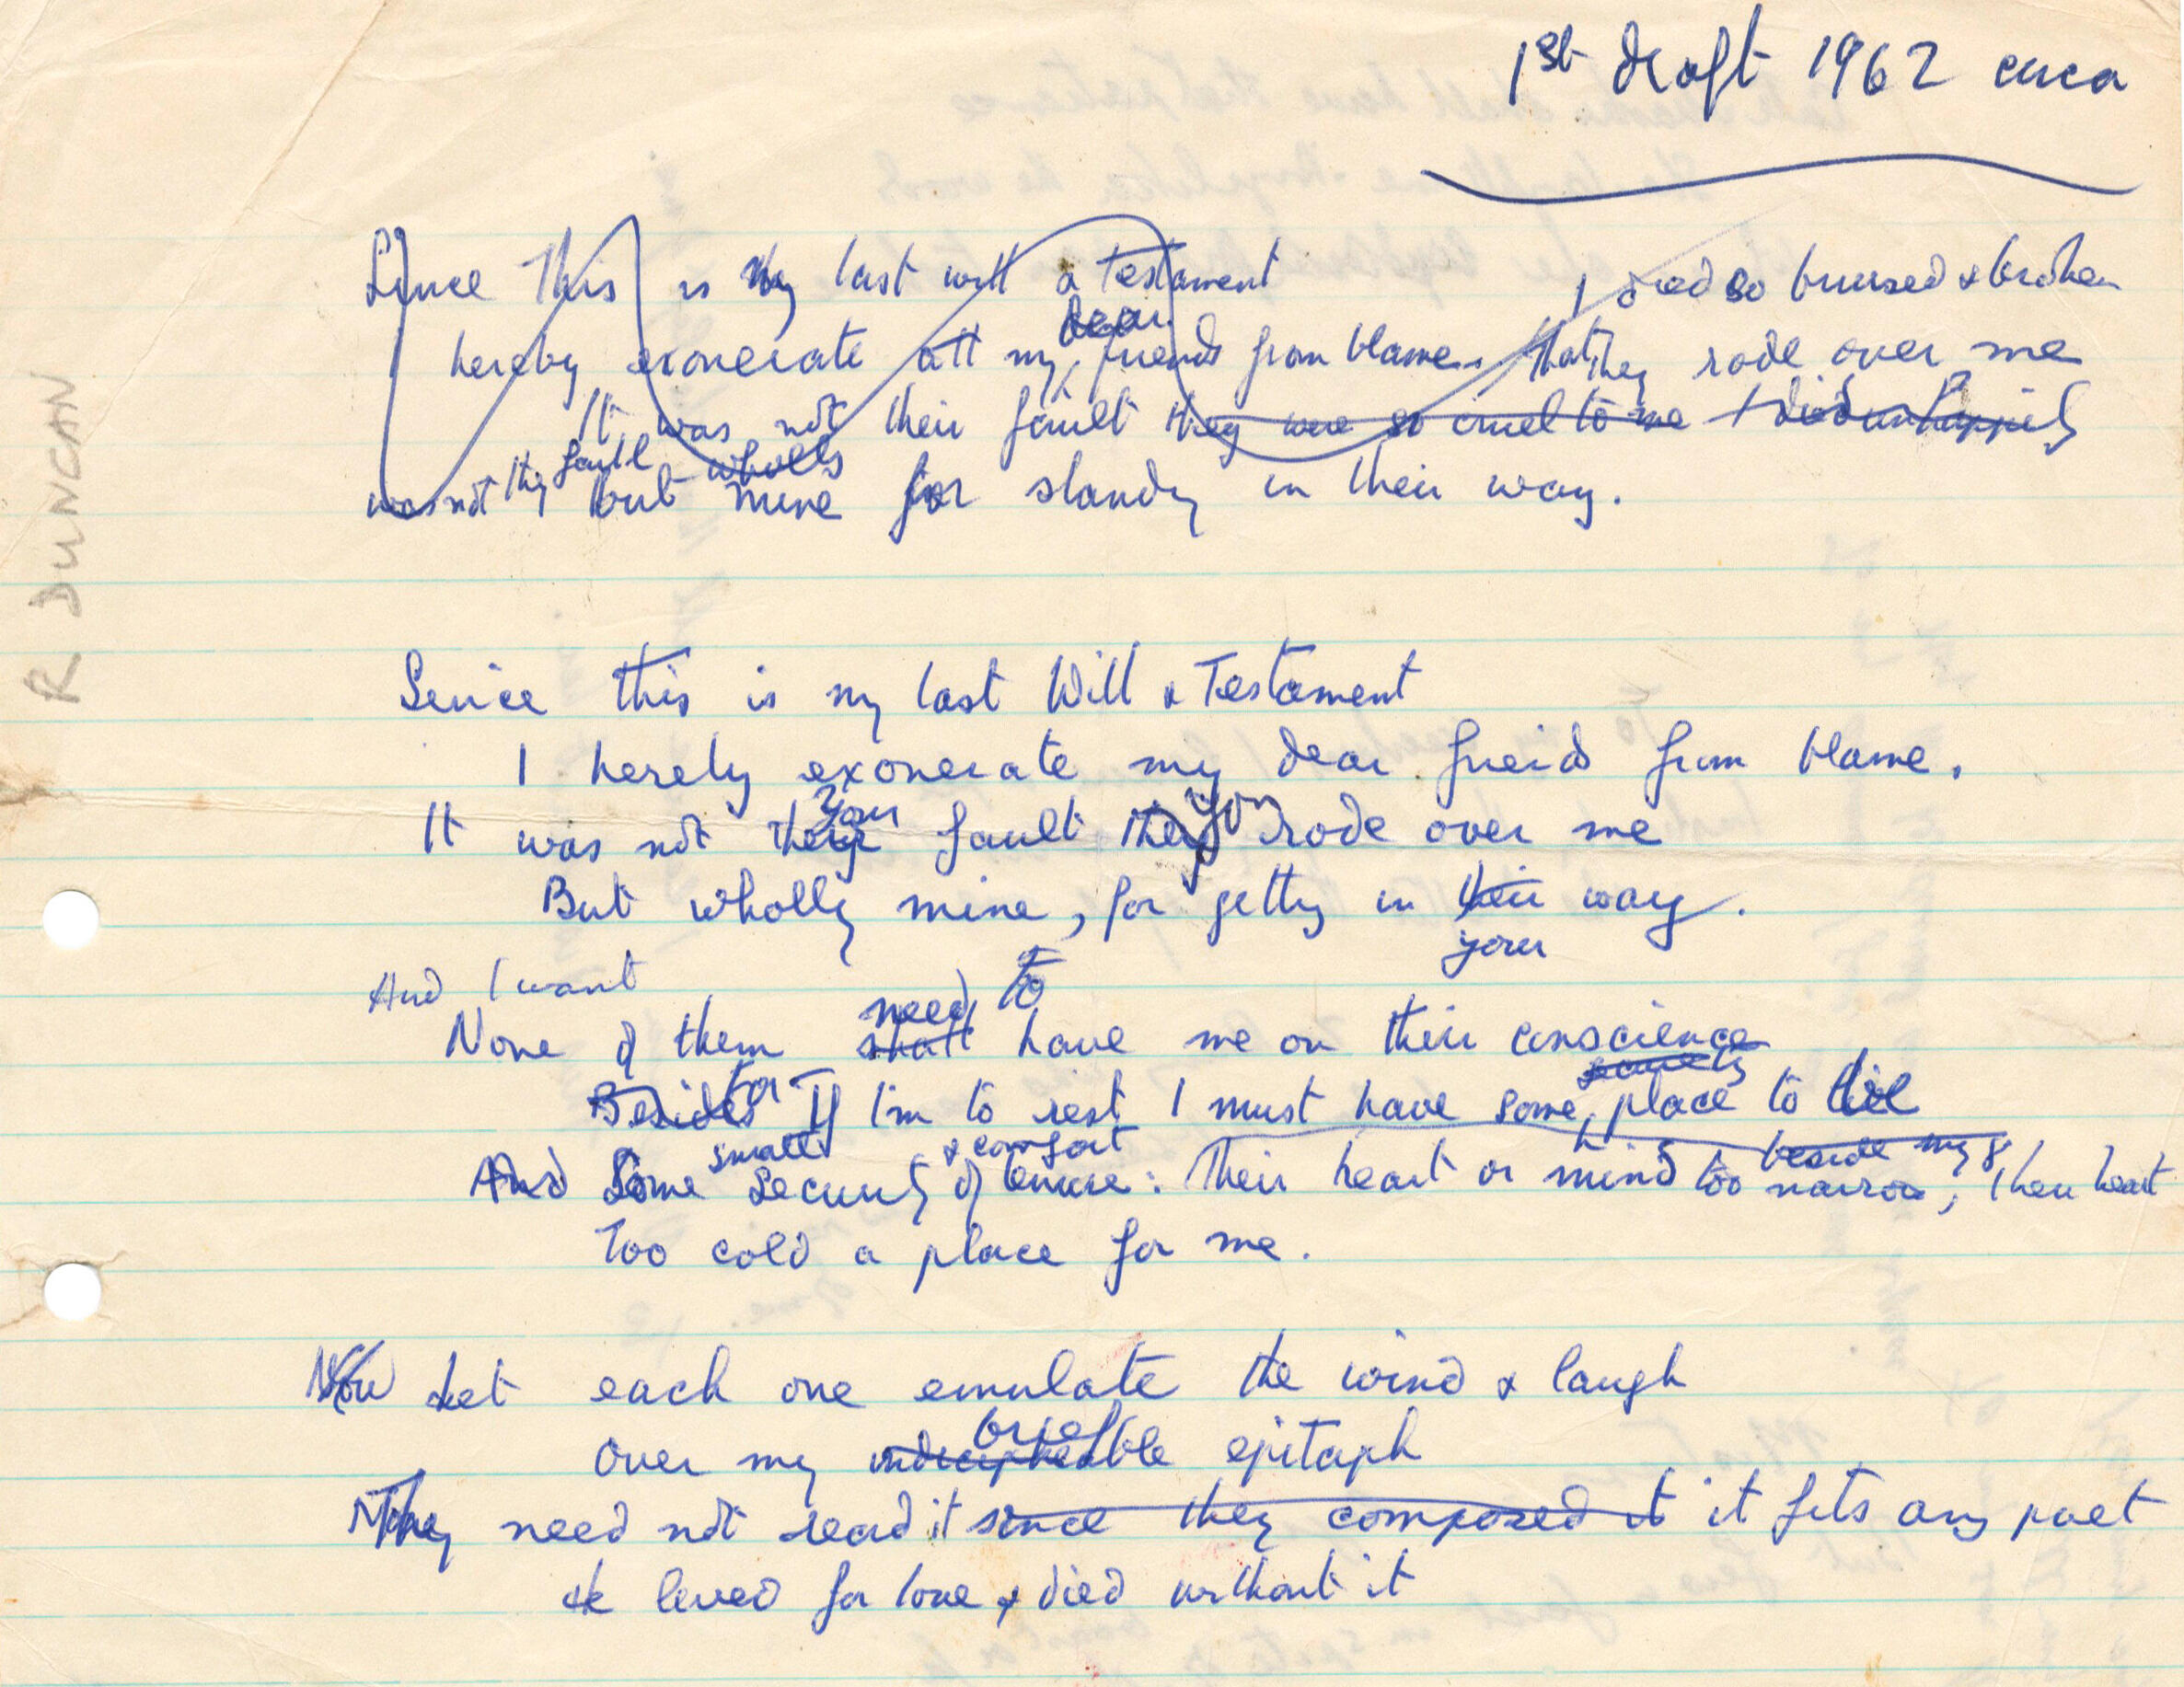 1st draft 1962 circa
R. DUNCAN
Since This is My last will & testament
I died so bruised & broken
dear
hereby exonerate all my friends from blame. that they rode over me
It was not their fault they were so cruel to me I died unhappily
was not their fault but wholly mine for standing in their way.
Since this is my last Will & Testament
I hereby exonerate my dear friends from blame.
your you
It was not their fault they rode over me
But wholly mine, for getting in their way.
your
And I want
need to
None of them shall have me on their conscience
for
Besides If I'm to rest I must have some place to lie
small & comfort beside my
And Some Security of tenure: Their heart or mind too narrow, their heart
Too cold a place for me.
Now Let each one emulate the wind & laugh
brief
over my indecipherable epitaph
They need not read it since they composed it it fits any poet
He lived for love & died without it